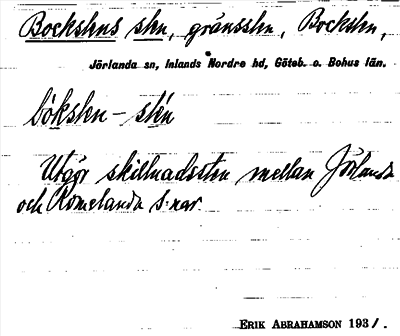 Bockstens sten, gränssten, Bocksten,
Jörlanda sn, Inlands Nordre hd, Göteb. o. Bohus län.
bòksten - stén
Utgör skillnadssten mellan Jörlanda
och Romelanda s:nar.
ERIK ABRAHAMSON 1931.